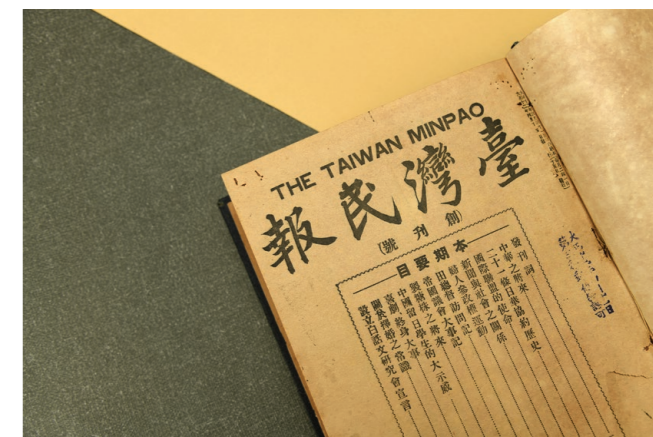 THE TAIWAN MINPAO
臺灣民報
(創刊號)
本期要目
發刊詞
中華之將來
二十一條日華協約歷史
國際聯盟的使命
新聞與社會之關係
婦人參政權運動
田總督訪問記
帝國議會大事記
製糖株之將來
中國留日學生的大示威
喜劇終身大事
關於擇婚之常識
設立白話文研究會宣言